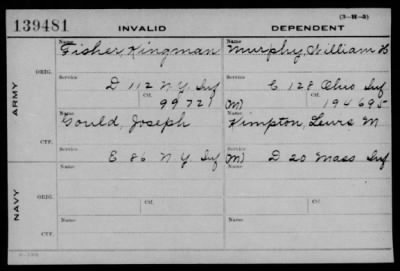 (3-H-3)
139481 INVALID DEPENDENT
Name Name
Fisher, Kingman Murphy, William H
ARMY
ORIG.
Service Service
D 112 N.Y. Inf C 128 Ohio Inf
Ctf. Ctf.
99721 (M) 194695
Name Name
Gould, Joseph Kimpton, Lewis M
CTF.
Service
E 86 N.Y. Inf (M) D 20 Mass Inf
NAVY
ORIG.
Name Name
Service Ctf. Service Ctf.
CTF.
Name Name